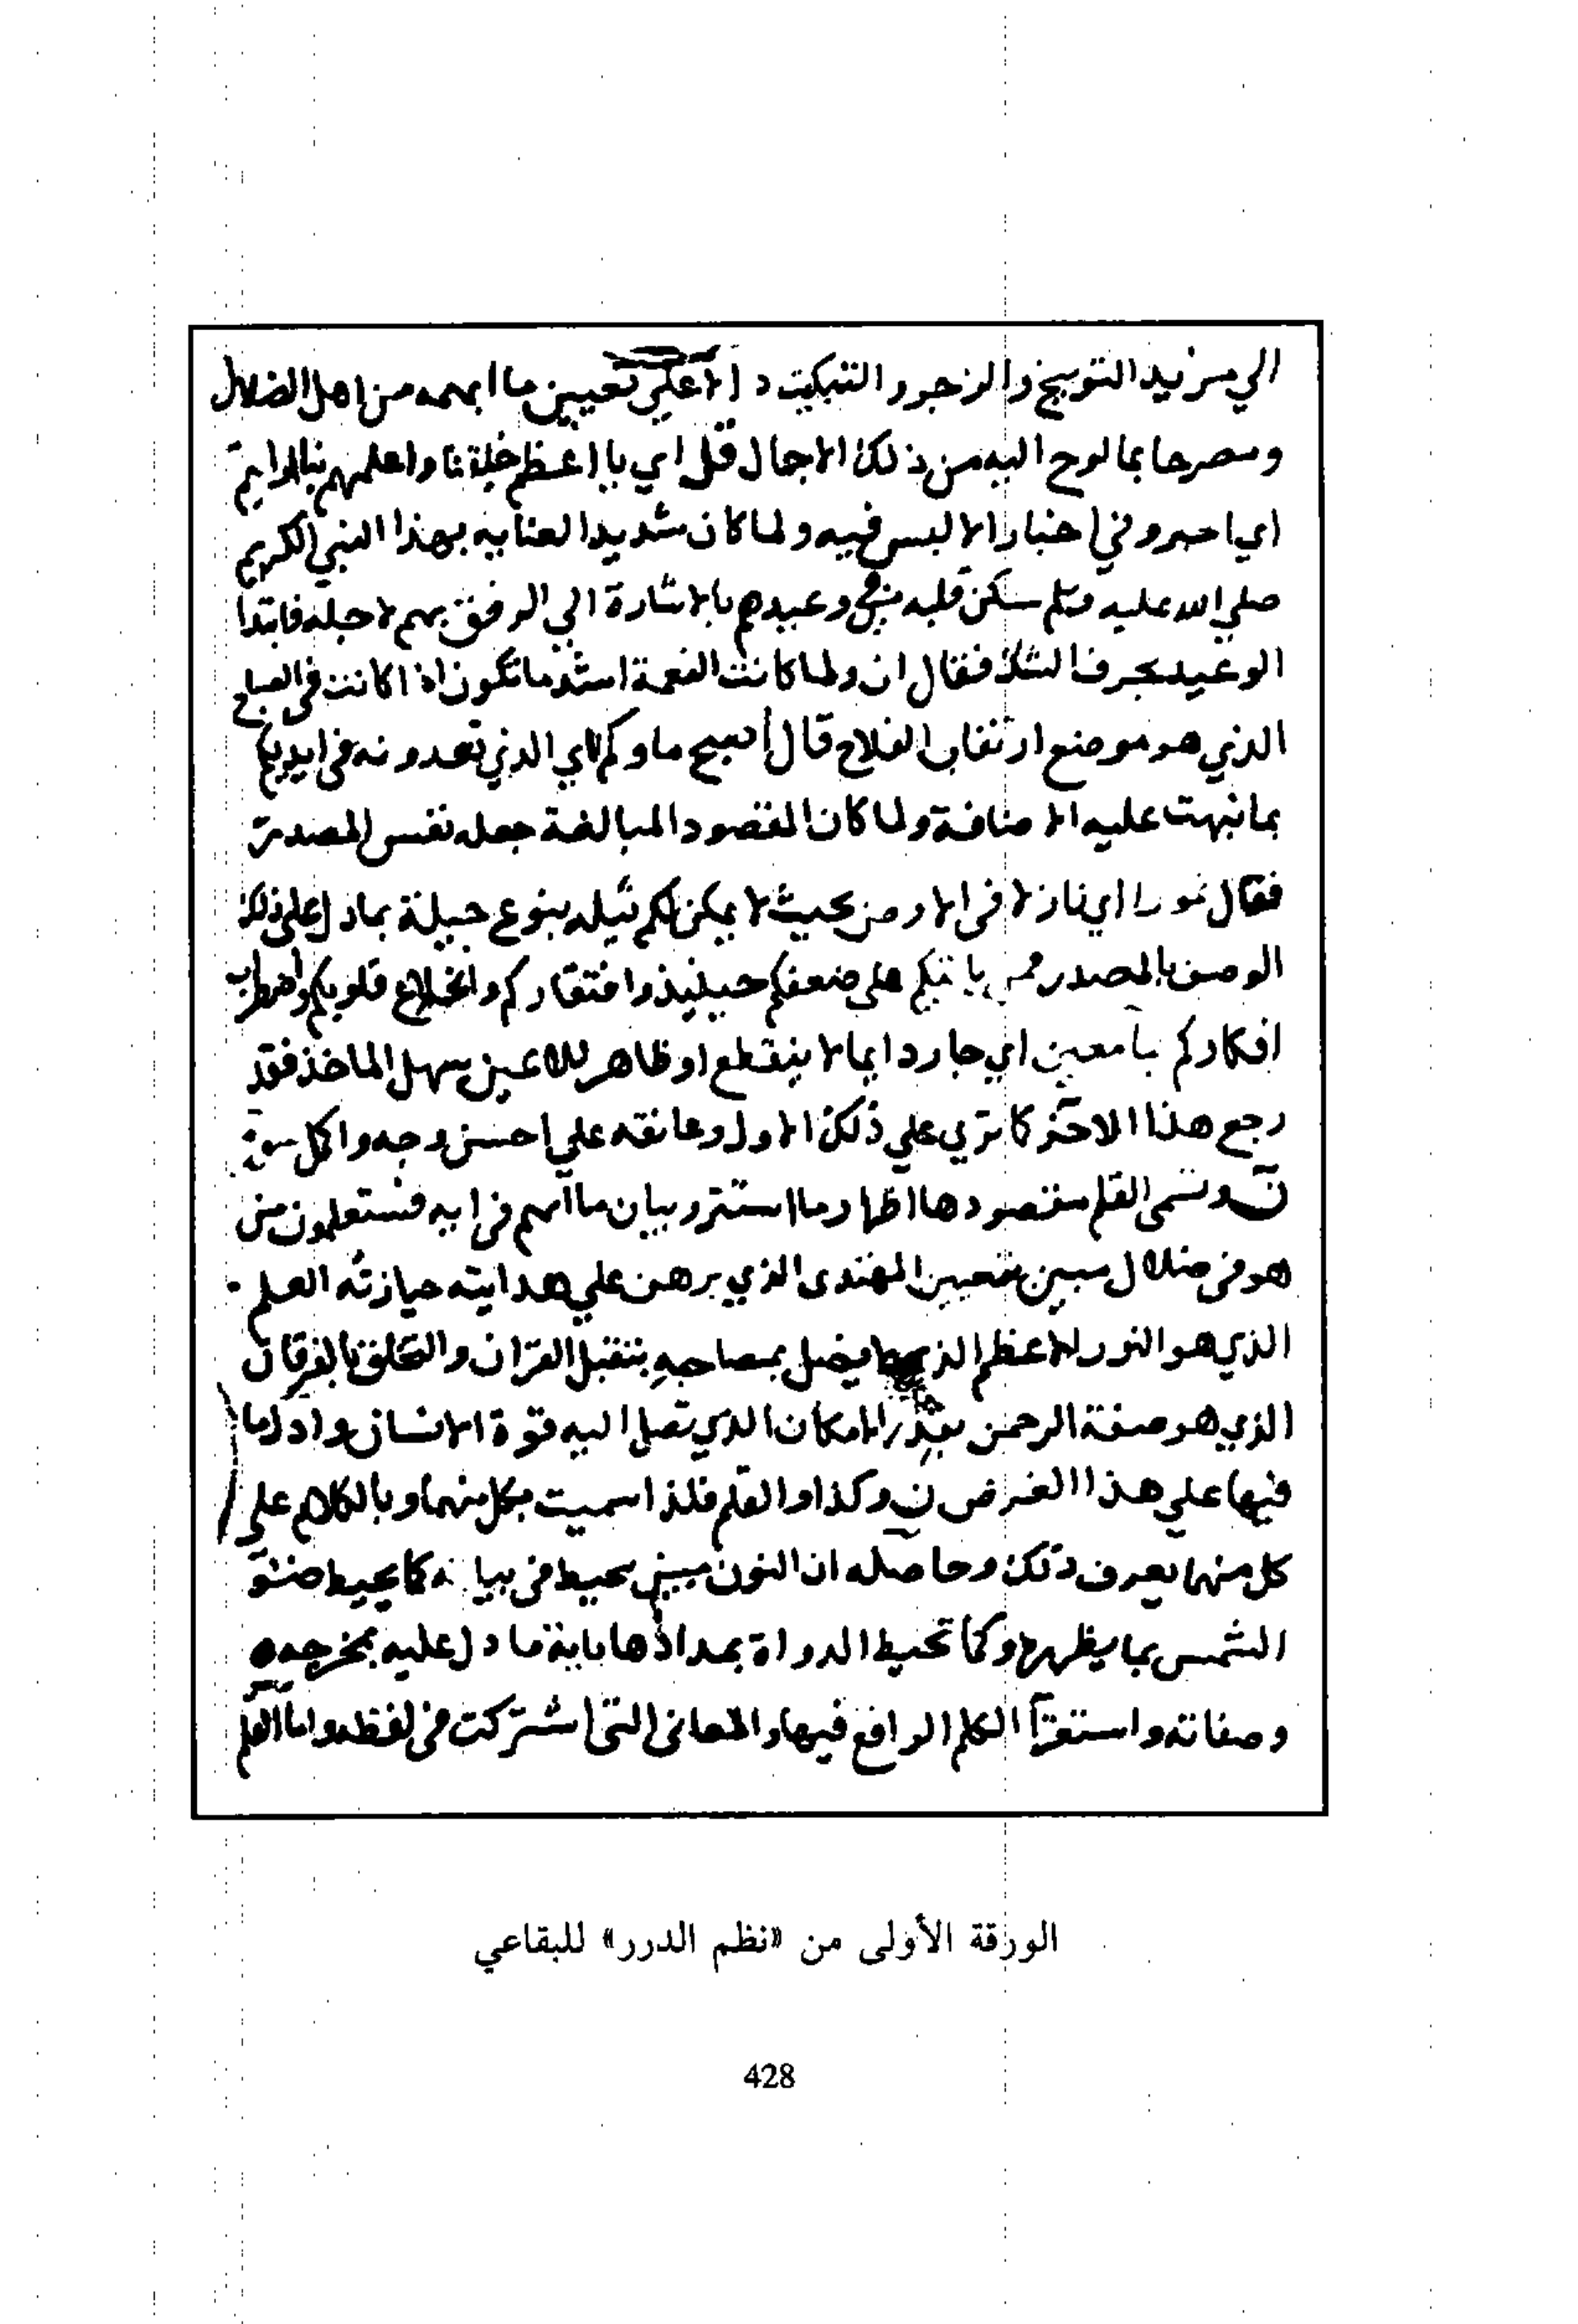 الي مزيد التوبيخ والزجر والتبكيت دالا علي تعيين ما ابهمه من اهل الضلال
ومصرحا بما لوح اليه من ذلك الاجمال قل اي يا اعظم خلقنا واعلمهم بنا ارايتم
اي اخبروني اخبارا لا لبس فيه ولما كان شديد العناية بهذا النبي الكريم
صلي الله عليه وسلم سكن قلبه في وعيدهم بالاشارة الي الرفق بهم لاجله فابتدا
الوعيد بحرف الشك فقال ان ولما كانت النعمة اشد ما تكون اذا كانت في الصباح
الذي هو موضع ارتقاب الفلاح قال أصبح ماوكم اي الذي تعدونه في ايديكم
بما نبهت عليه الاضافة ولما كان المقصود المبالغة جعله نفس المصدر
فقال غورا اي نازلا في الارض بحيث لا يمكن لكم نيله بنوع حيلة بما دل علي ذلك
الوصف بالمصدر فمن ياتيكم علي ضعفكم حينيذ وافتقاركم وانخلاع قلوبكم واضطراب
افكاركم بما معين اي جار دايما لا ينقطع او ظاهر للاعين سهل الماخذ فقد
رجع هذا الاخر كما تري علي ذلك الاول وعانقه علي احسن وجه واكمل
ن وتسمى القلم مقصودها اظهار ما استتر وبيان ما ابهم في اية فستعلمون من
هو في ضلال مبين بتعيين المهتدى الذي برهن علي هدايته حيازته العلم
الذي هو النور الاعظم الذي لا يضل بمصاحبه بتقبل القران والتخلق بالفرقان
الذي هو صفة الرحمن بقدر الامكان الذي تصل اليه قوة الانسان وادل ما
فيها علي هذا الغرض ن وكذا والقلم فلذا سميت بكل منهما وبالكلام علي
كل منهما يعرف ذلك وحاصله ان النون مبين محيط في بيانه كما يحيط ضوء
الشمس بما يظهره وكما تحيط الدواة بمدادها باية ما دل عليه بمخرجه
وصفاته واستقرا الكلم الواقع فيها والمعاني التي اشتركت في لفظه واما القلم
الورقة الأولى من «نظم الدرر» للبقاعي
428